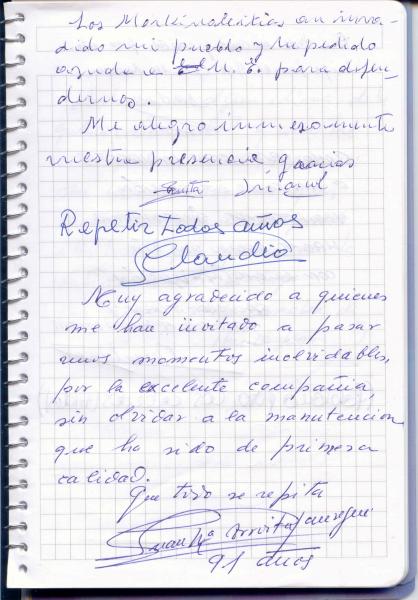 Los Morkinalentias an inva-
dido mi pueblo y he pedido
ayuda a M. E. para defen-
dernos.
Me alegro inmesamente
vuestra presencia gracias
Repetir todos años
Claudio
Muy agradecido a quienes
me han invitado a pasar
unos momentos inolvidables,
por la excelente compañia,
sin olvidar a la manutencion
que ha sido de primera
calidad.
Que tojo se repita
Juan Mª
91 años